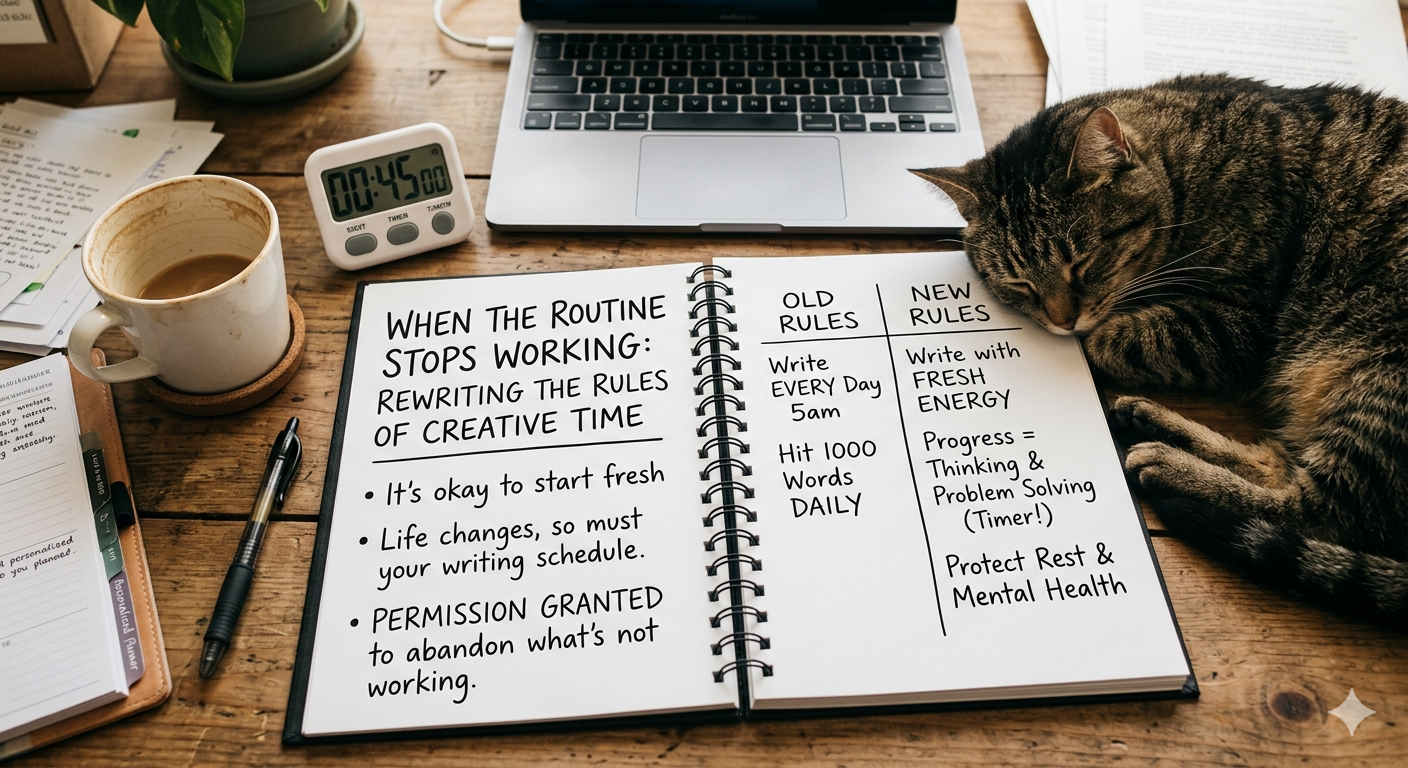 WHEN THE ROUTINE
STOPS WORKING:
REWRITING THE RULES
OF CREATIVE TIME
• It's okay to start fresh
• Life changes, so must
your writing schedule.
• PERMISSION GRANTED
to abandon what's not
working.
OLD
RULES
Write
EVERY Day
5am
Hit 1000
Words
DAILY
NEW
RULES
Write with
FRESH
ENERGY
Progress =
Thinking &
Problem Solving
(Timer!)
Protect Rest &
Mental Health
00:45 00
TIMER
personalised
to you planned.
Planner